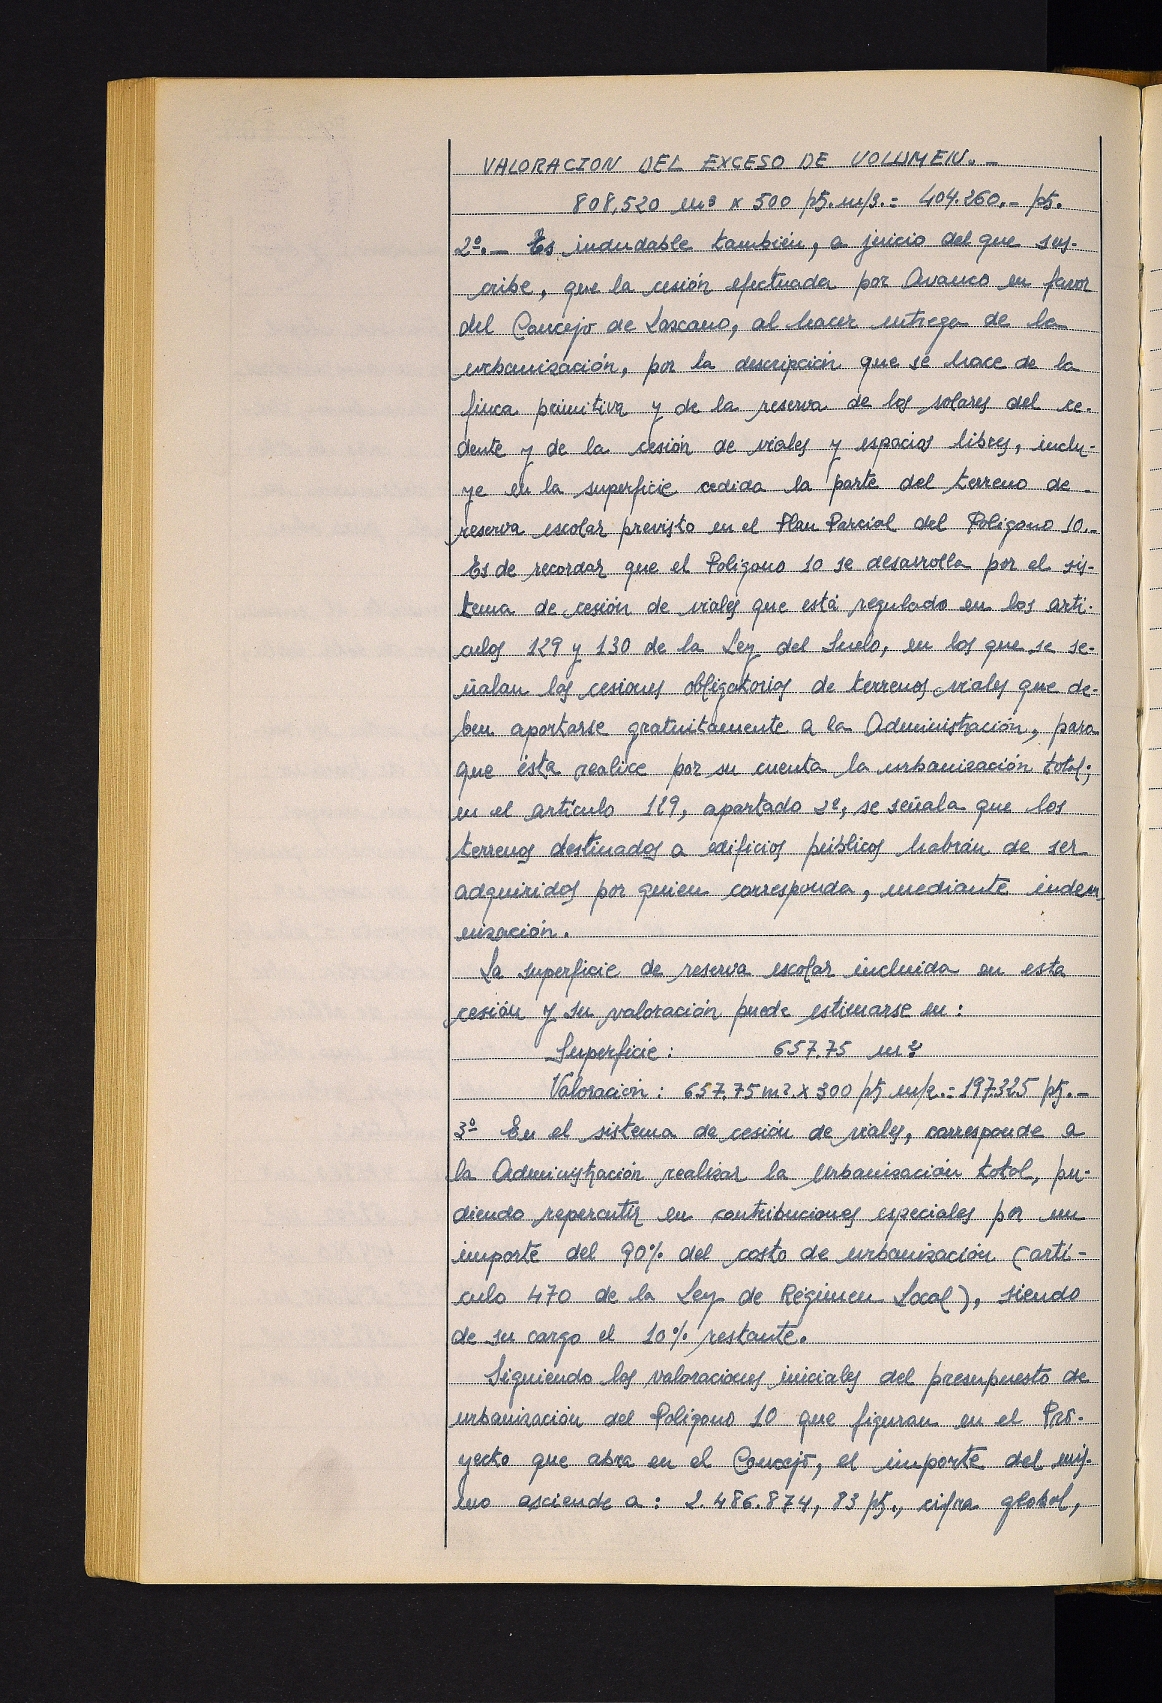 VALORACION DEL EXCESO DE VOLUMEN.-
808,520 m³ x 500 pts. m/3. = 404.260.- pts.
2º.- Es indudable también, a juicio del que sus-
cribe, que la cesión efectuada por Avanco en favor
del Concejo de Lascano, al hacer entrega de la
urbanización, por la descripción que se hace de la
finca primitiva y de la reserva de los solares del ce-
dente y de la cesión de viales y espacios libres, inclu-
ye en la superficie cedida la parte del terreno de
reserva escolar previsto en el Plan Parcial del Polígono 10.-
Es de recordar que el Polígono 10 se desarrolla por el sis-
tema de cesión de viales que está regulado en los artí-
culos 129 y 130 de la Ley del Suelo, en los que se se-
ñalan las cesiones obligatorias de terrenos viales que de-
ben aportarse gratuitamente a la Administración, para
que ésta realice por su cuenta la urbanización total;
en el artículo 129, apartado 2º, se señala que los
terrenos destinados a edificios públicos habrán de ser
adquiridos por quien corresponda, mediante indem-
nización.
La superficie de reserva escolar incluida en esta
cesión y su valoración puede estimarse en:
Superficie: 657.75 m2
Valoración: 657.75 m2. x 300 pts m/2. = 197.325 pts.-
3º En el sistema de cesión de viales, corresponde a
la Administración realizar la urbanización total, pu-
diendo repercutir en contribuciones especiales por un
importe del 90% del costo de urbanización (artí-
culo 470 de la Ley de Régimen Local), siendo
de su cargo el 10% restante.
Siguiendo las valoraciones iniciales del presupuesto de
urbanización del Polígono 10 que figuran en el Pro-
yecto que abra en el Concejo, el importe del mis-
mo asciende a: 2.486.874,83 pts., cifra global,